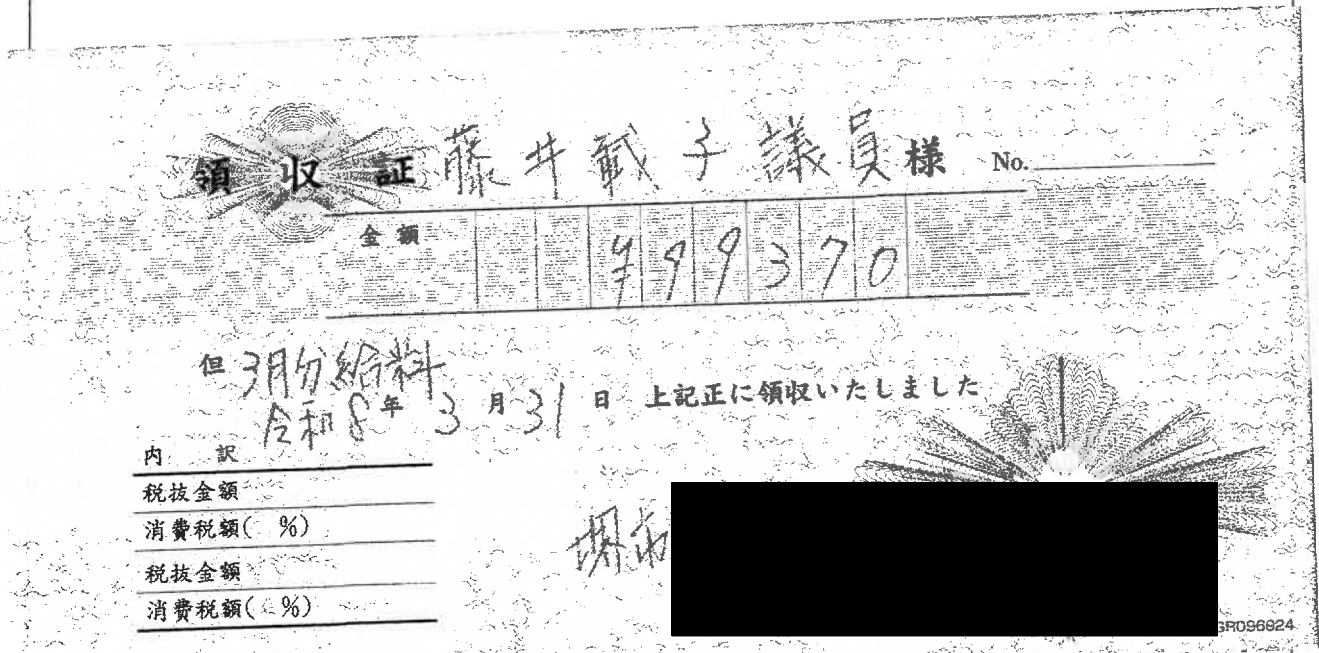 領収証 藤井載子議員様 No.
金額 ¥99370
但 3月分給料
令和8年3月31日 上記正に領収いたしました
内訳
税抜金額
消費税額( %)
税抜金額
消費税額( %)
堺市
GR096824